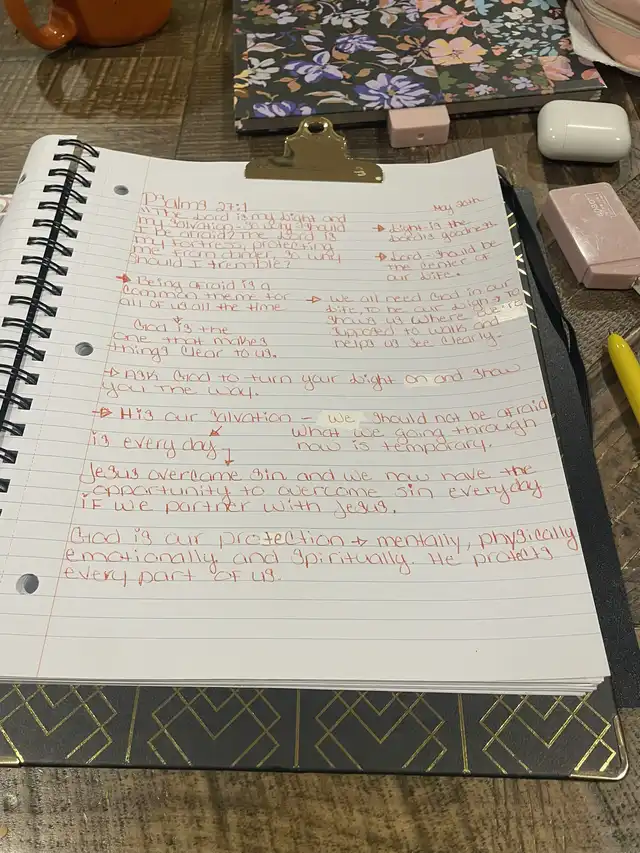 Psalms 27:1
May 20th
"The Lord is my Light and
my Salvation - so why should
I be afraid? The Lord is
my fortress, protecting
me from danger, so why
should I tremble?
→ Light - is the
Lord's goodness
→ Lord - should be
the center of
our life.
→ Being afraid is a
common theme for
all of us all the time
God is the
one that makes
things clear to us.
→ We all need God in our
life, to be our Light & to
show us where we're
supposed to walk and
helps us see clearly.
→ Ask God to turn your light on and show
you the way.
→ His our salvation - we should not be afraid
what we going through
now is temporary.
is every day
Jesus overcame sin and we now have the
opportunity to overcome sin everyday
if we partner with Jesus.
God is our protection → mentally, physically
emotionally and spiritually. He protects
every part of us.